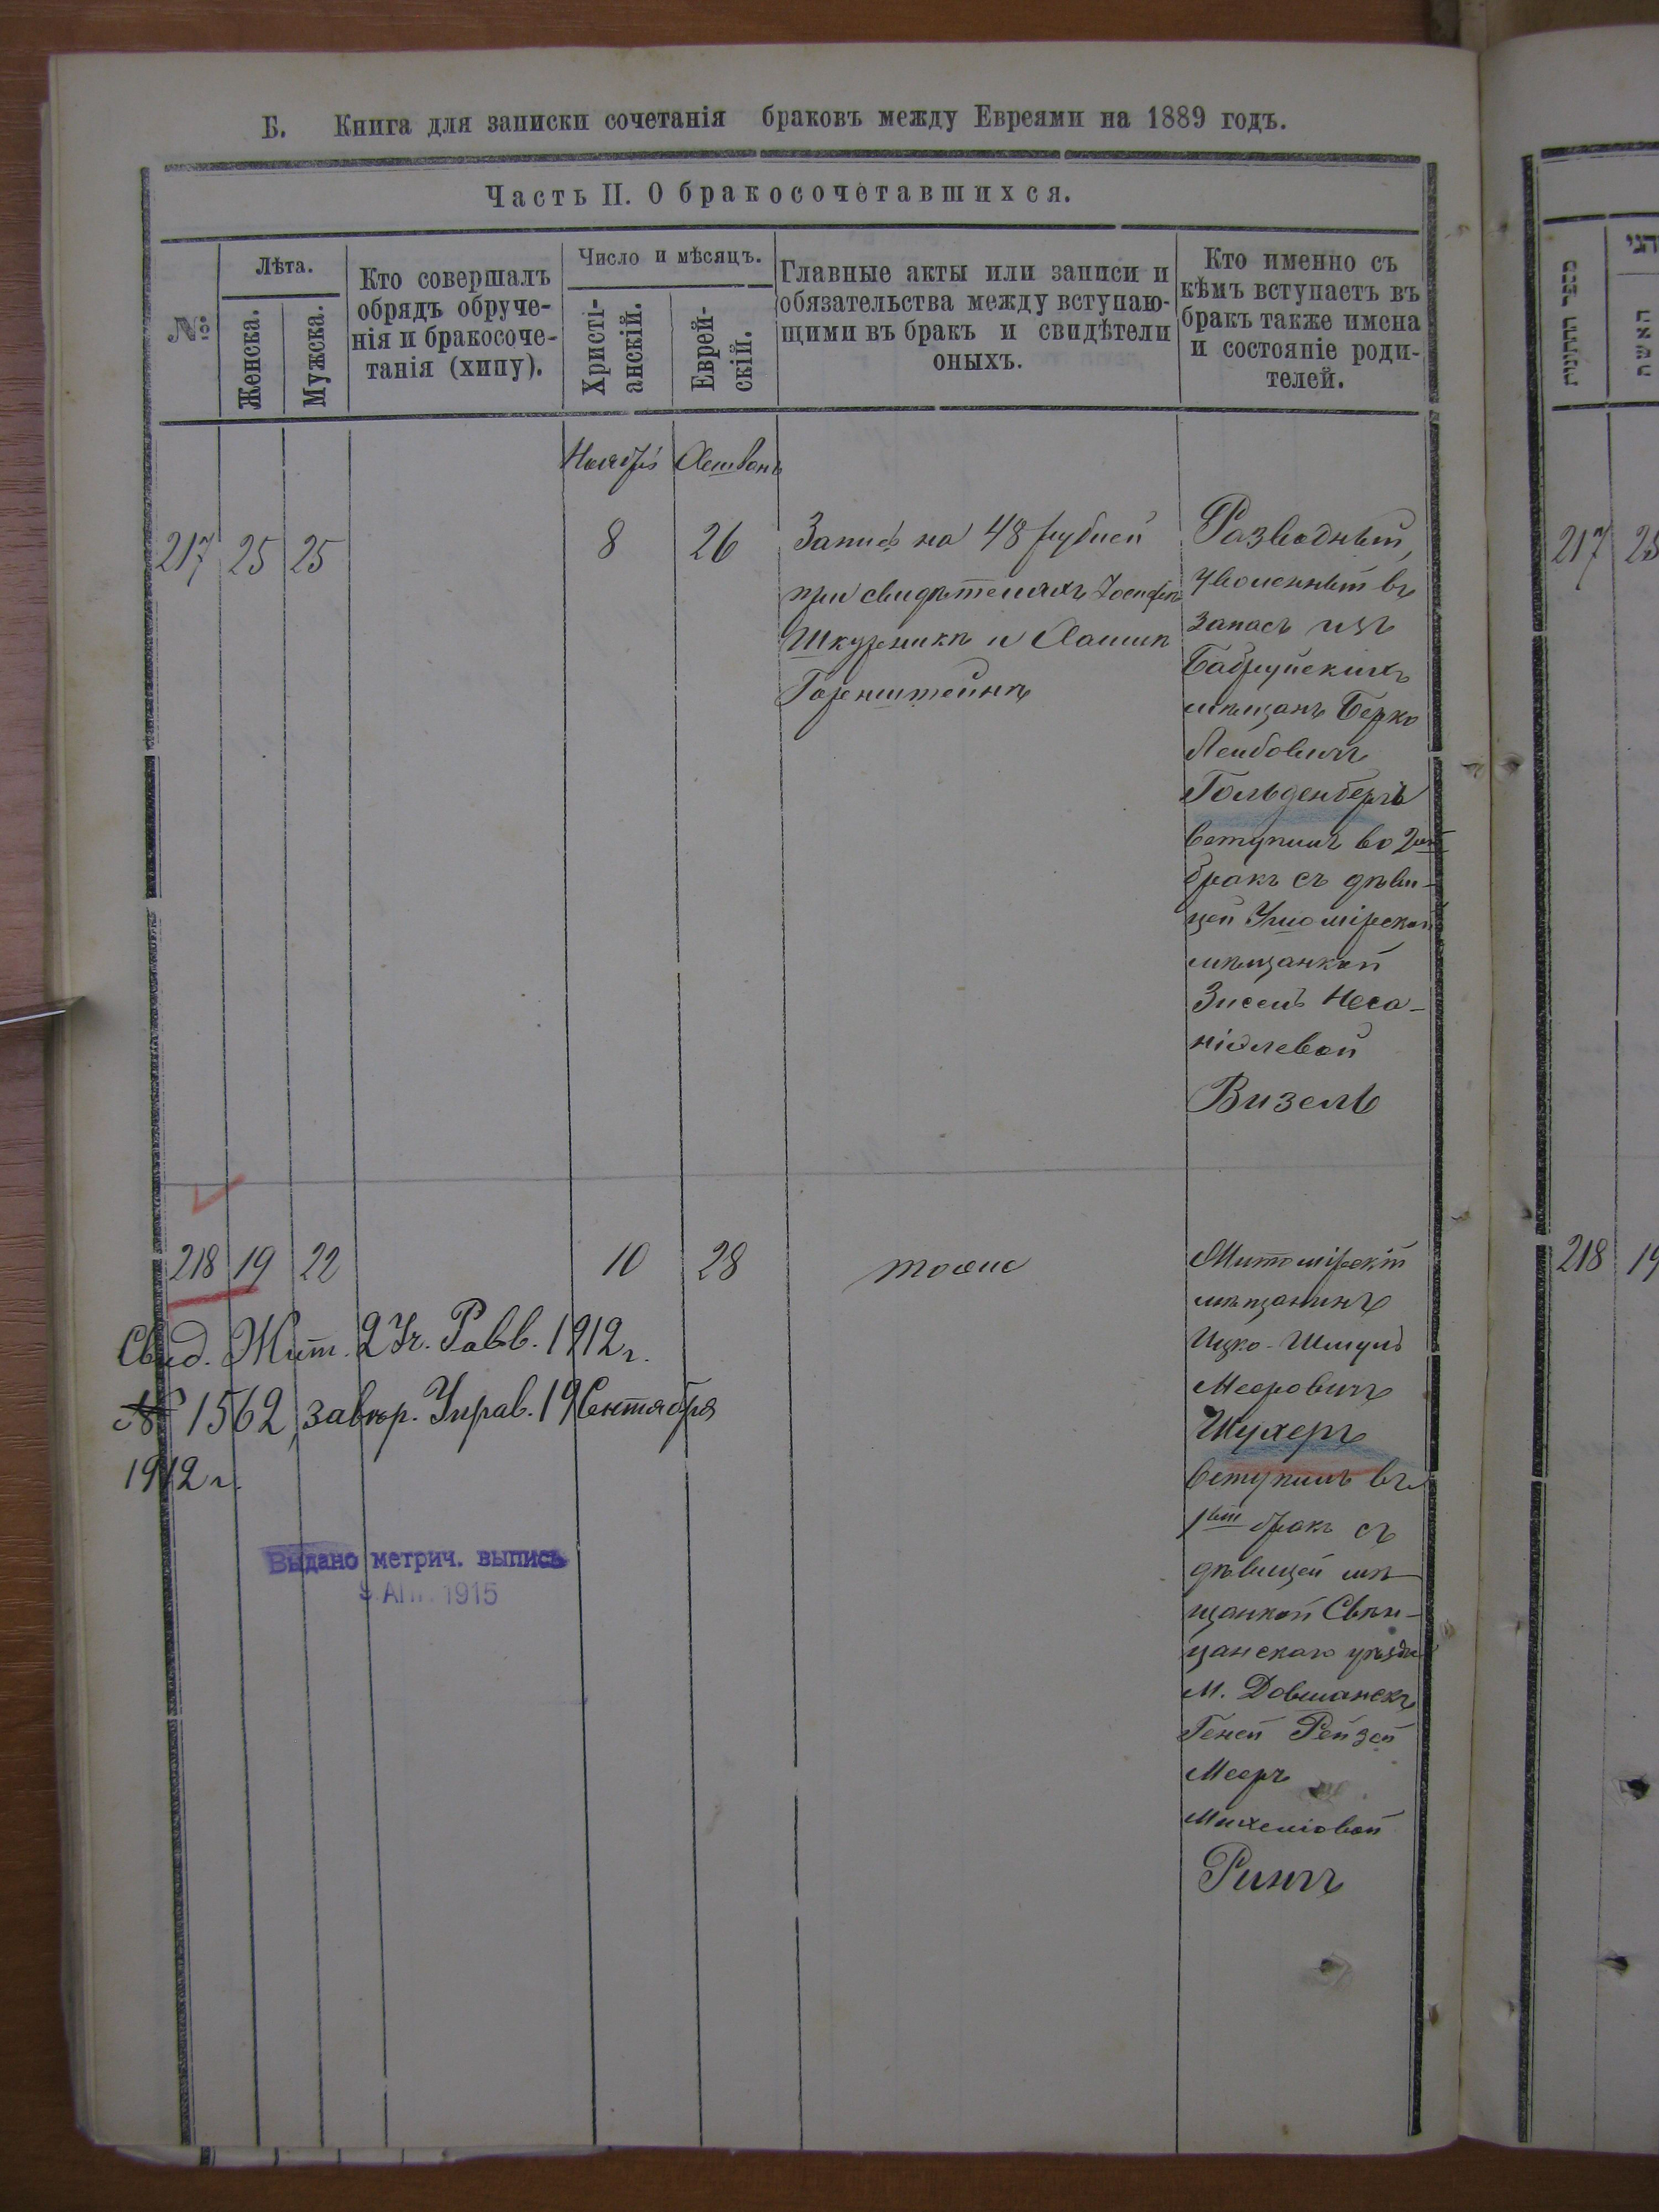 Б. Книга для записки сочетанія браковъ между Евреями на 1889 годъ.
Часть II. О бракосочетавшихся.
№
Лѣта.
Женска.
Мужска.
Кто совершалъ
обрядъ обруче-
нія и бракосоче-
танія (хипу).
Число и мѣсяцъ.
Христі-
анскій.
Еврей-
скій.
Главные акты или записи и
обязательства между вступаю-
щими въ бракъ и свидѣтели
оныхъ.
Кто именно съ
кѣмъ вступаетъ въ
бракъ также имена
и состояніе роди-
телей.
Ноября Хешванъ
217 25 25 8 26
Запись на 48 рублей
при свидѣтеляхъ Іосифѣ
Шкурникѣ и Хаимѣ
Горенштейнѣ
Разводный,
уволенный въ
запасъ изъ
Бобруйскихъ
мѣщанъ Берко
Лейбовичъ
Гольденбергъ
вступилъ во 2ой
бракъ съ дѣви-
цей Ушомірской
мѣщанкой
Зисель Неса-
ніолевой
Визель
218 19 22 10 28 тоже
Житомірскій
мѣщанинъ
Ицко-Шмуль
Мееровичъ
Шухеръ
вступилъ въ
1ый бракъ съ
дѣвицей мѣ-
щанкой Свѣн-
цянскаго уѣзда
М.
Геней Рейзей
Мееръ
Михеліовой
Рингъ
Свид. Жит. 2 Уч. Равв. 1912 г.
№ 1562, завѣр. Управ. 19 Сентября
1912 г.
Выдано метрич. выпись
9 АПР 1915
מספר החתונות
האשה
217 25
218 19